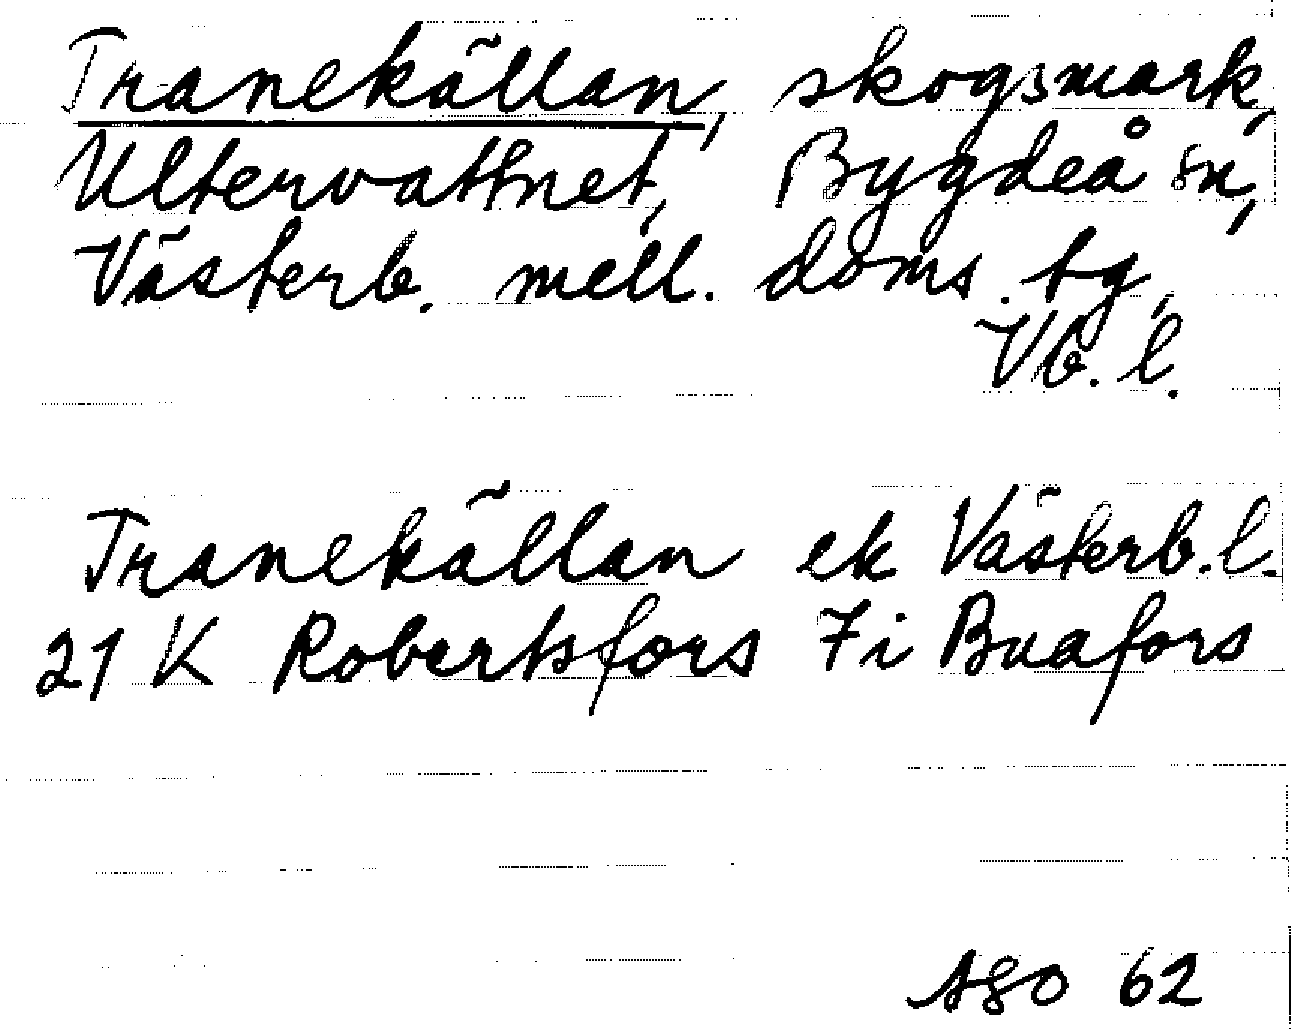 Tranekällan, skogsmark,
Ultervattnet, Bygdeå sn,
Västerb. mell. doms. tg,
Vb. l.
Tranekällan ek Västerb. l.
21 K Robertsfors 7 i Buafors
ASO 62